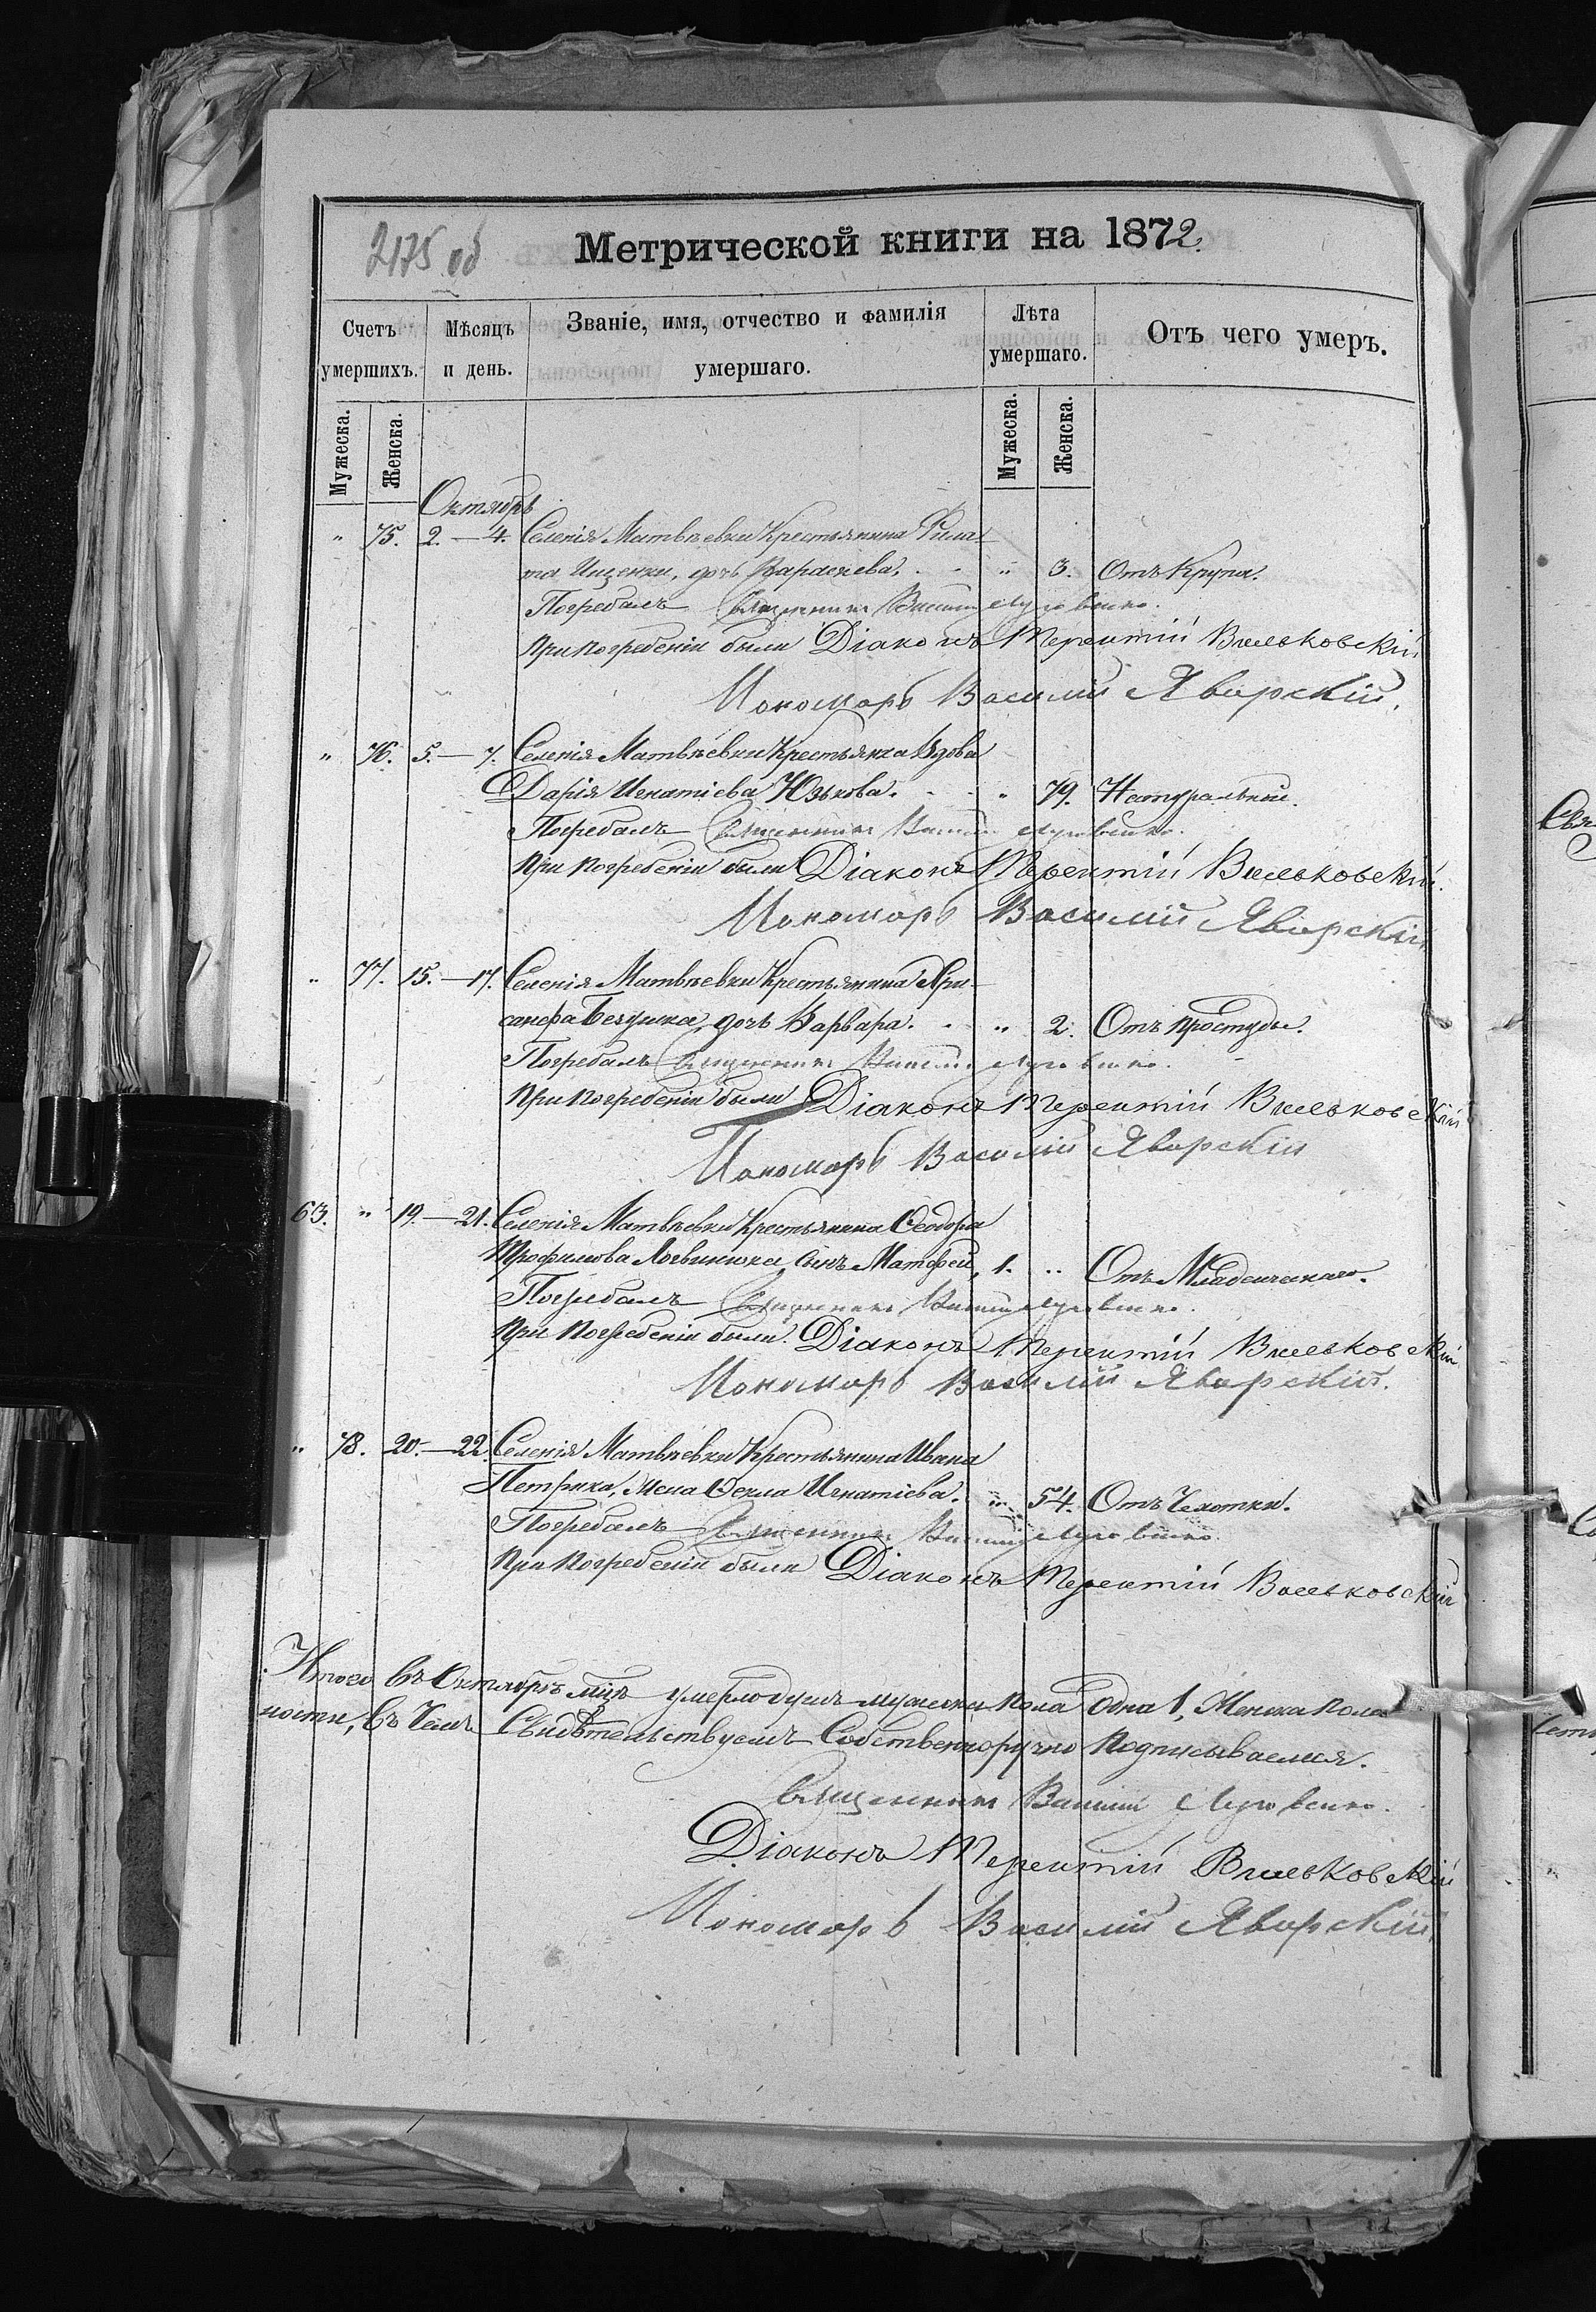 2175 об
Метрической книги на 1872.
Счетъ умершихъ.
Мѣсяцъ и день.
Званіе, имя, отчество и фамилія умершаго.
Лѣта умершаго.
Отъ чего умеръ.
Мужеска.
Женска.
Мужеска.
Женска.
Октябрь
" 75. 2.—4. Селенія Матвѣевки Крестьянина Фила-
та Ищенки, дочь Параскева. " 3. Отъ Крупа.
Погребалъ Священникъ Василій
При погребеніи были Діаконъ Терентій Вильковскій
Пономарь Василій Яворскій.
" 76. 5.—7. Селенія Матвѣевки Крестьянка Вдова
Дарія Игнатіева Юзькова. " 79. Натуральной.
Погребалъ Священникъ Василій
При погребеніи были Діаконъ Терентій Вильковскій.
Пономарь Василій Яворскій
" 77. 15.—17. Селенія Матвѣевки Крестьянина Хри-
санфа дочь Варвара. " 2. Отъ простуды.
Погребалъ Священникъ Василій
При погребеніи были Діаконъ Терентій Вильковскій
Пономарь Василій Яворскій
63. " 19.—21. Селенія Матвѣевки Крестьянина Ѳеодора
Трофимова Логвинюка, сынъ Матфей, 1. " Отъ Младенческаго.
Погребалъ Священникъ Василій
При погребеніи были Діаконъ Терентій Вильковскій
Пономарь Василій Яворскій.
" 78. 20.—22. Селенія Матвѣевки Крестьянина Ивана
Петрика, жена Ѳекла Игнатіева. " 54. Отъ Чахотки.
Погребалъ Священникъ Василій
При погребеніи были Діаконъ Терентій Вильковскій
Итого въ Октябрѣ мцѣ умерло душъ мужеска пола одна 1, Женска пола
въ Чемъ Свидѣтельствуемъ Собственноручно Подписываемся.
Священникъ Василій
Діаконъ Терентій Вильковскій
Пономарь Василій Яворскій